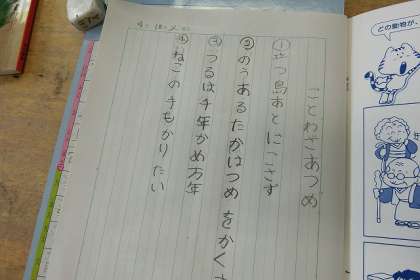 ことわざあつめ
①立つ鳥あとにごさず
②のうあるたかはつめをかくす
③つるは千年かめ万年
④ねこの手もかりたい
どの動物が